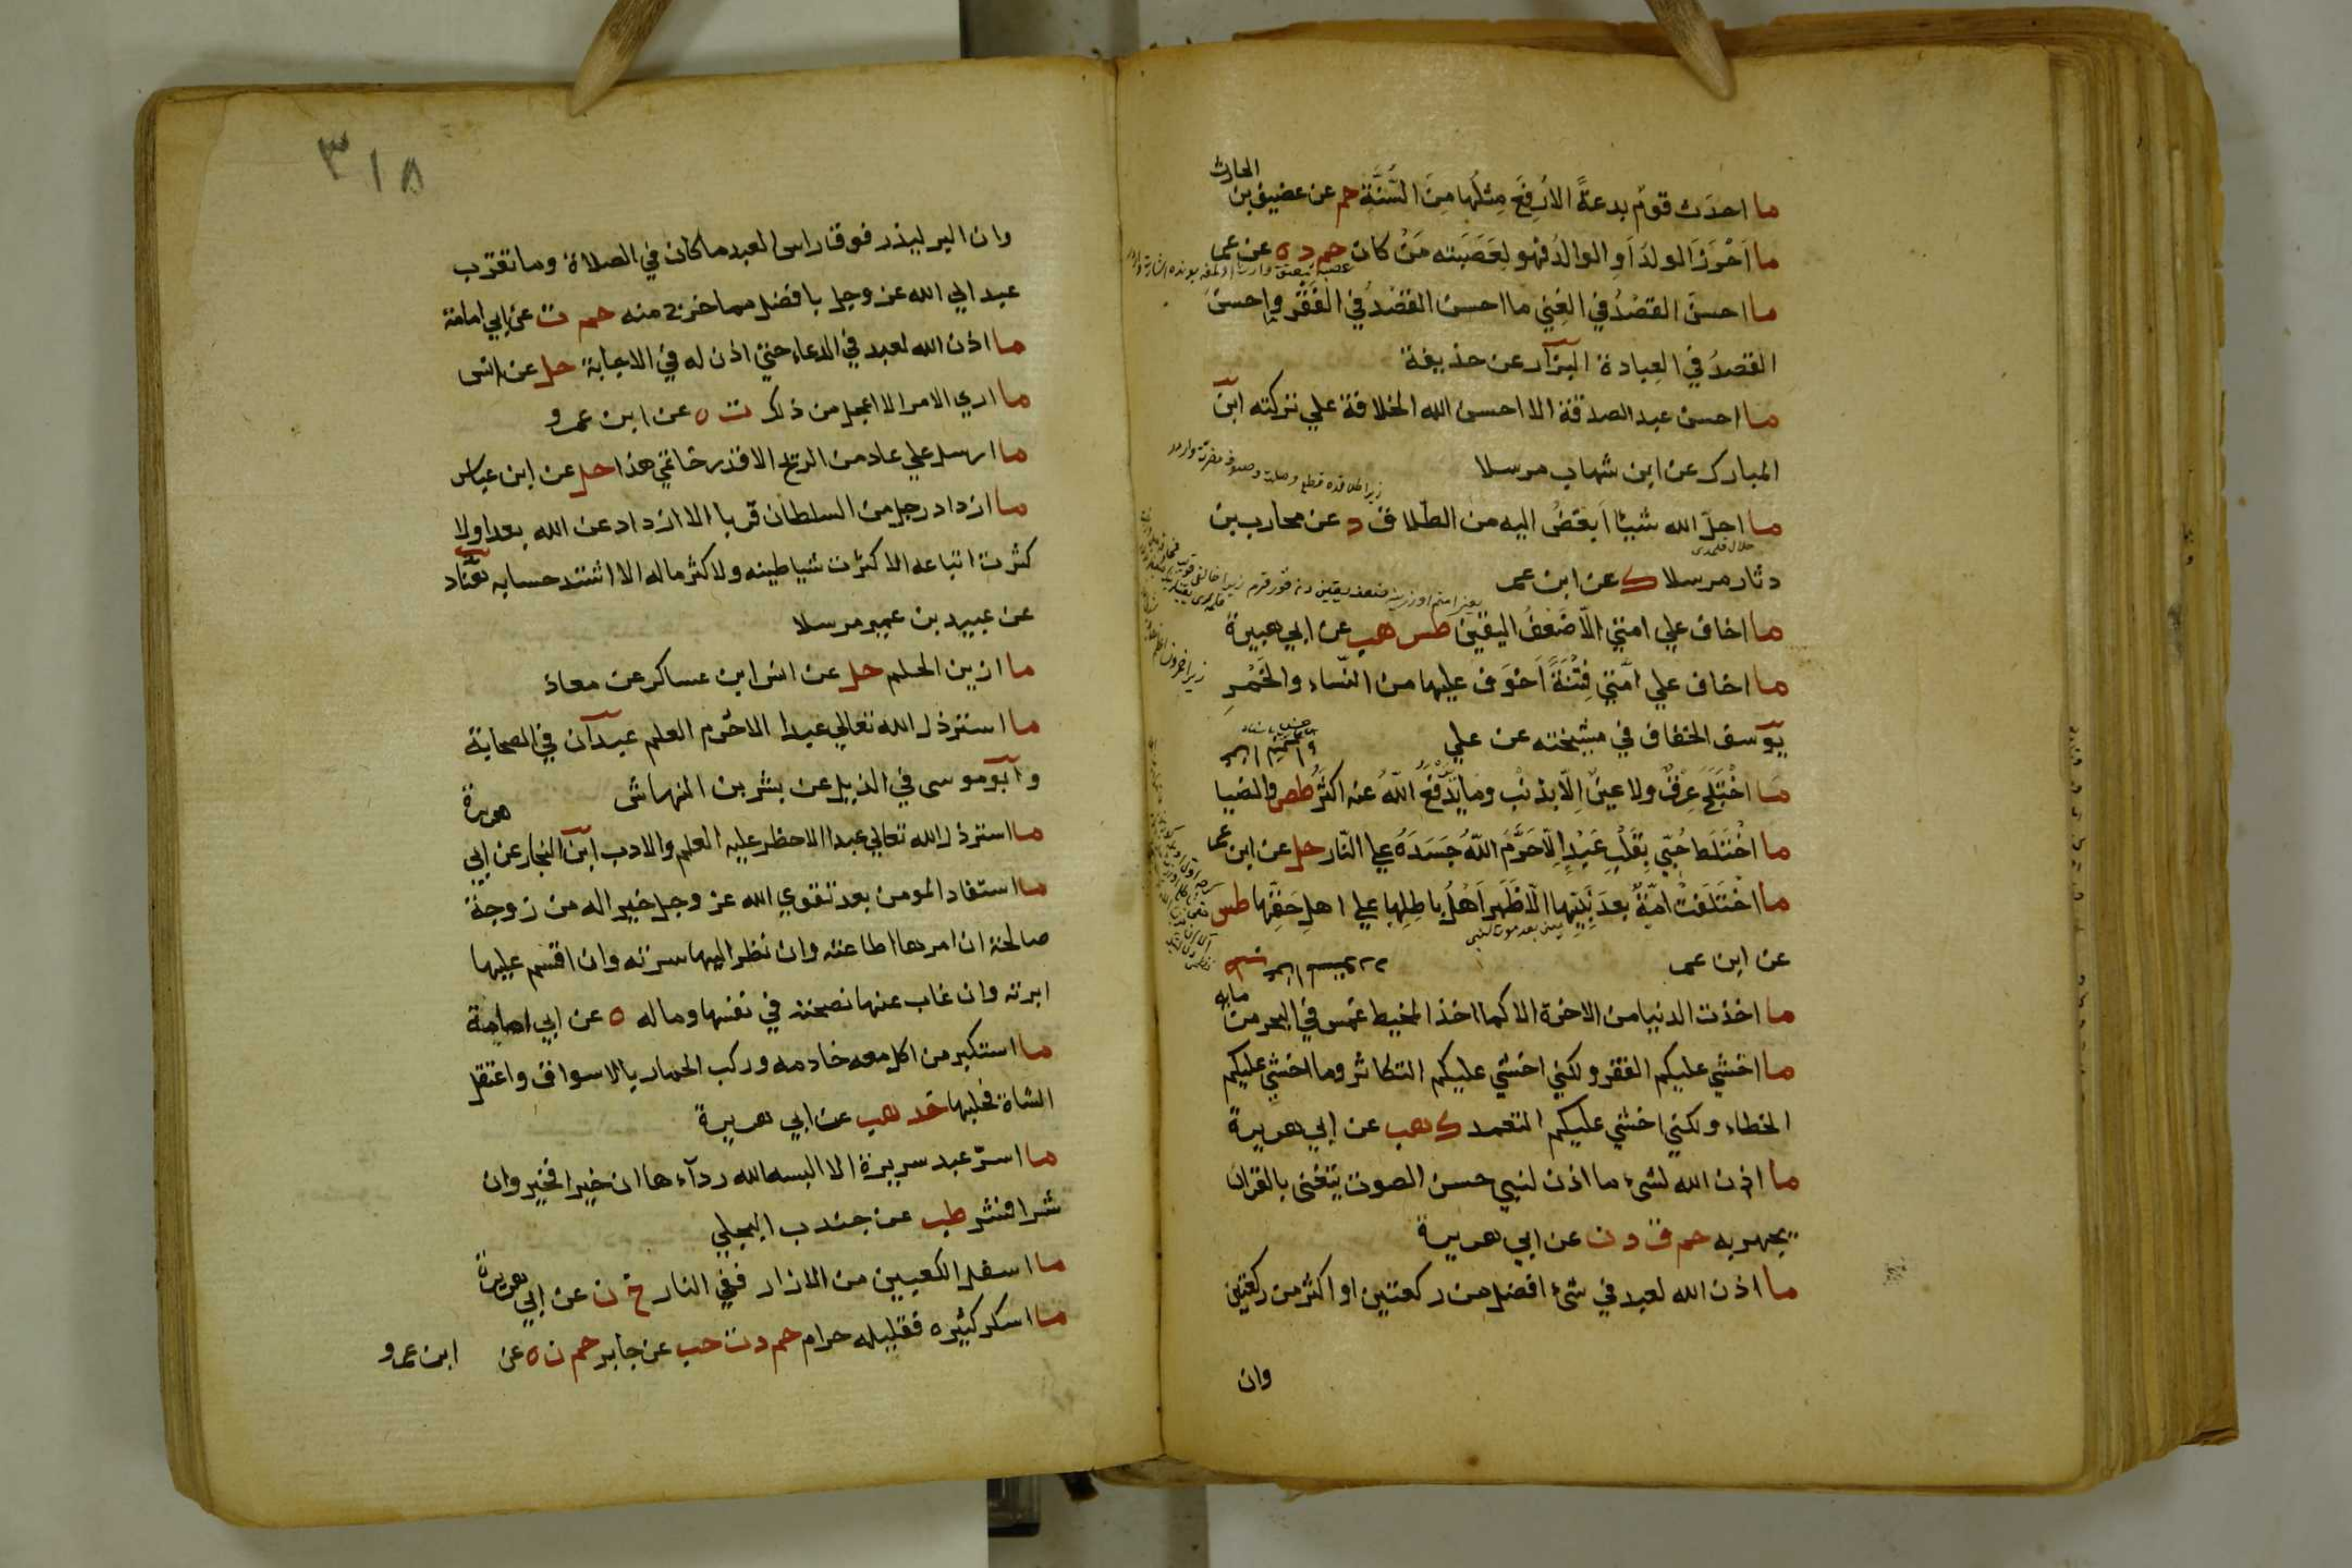 ما احدَث قومٌ بدعةً الا رُفِعَ مِثلُها مِنَ السُّنَّةِ حم عن غضيف بن الحارث
ما اَحْرَزَ الولدَ اَوِ الوالدُ فهو لِعَصَبَته مَنْ كان حم د ه عن عمر
ما احسنَ القصدُ في الغِنى ما احسن القصدُ في الفَقْر وما احسن
القصدُ في العِبادة البزار عن حذيفة
ما احسن عبد الصدقة الا احسن الله الخلافة علي تركته ابن
المبارك عن ابن شهاب مرسلا
ما احلّ الله شيئا اَبغضُ اليه من الطّلاق د عن محارب بن
حلال قلمدى
دثار مرسلا ك عن ابن عمر
ما اخاف علي امتي الّا ضَعْفُ اليقين طس هب عن ابي هريرة
ما اخاف علي امّتي فِتْنَةً اَخوَف عليها من النّساء والخَمْرِ
يوسف الخفاف في مشيخته عن علي
ما اخْتَلَجَ عِرْقٌ ولا عينٌ اِلّا بذنْب وما يَدْفَعُ اللّهُ عنه اكثَرُ طص والضيا
ما اخْتَلَط حُبّي بِقَلْبِ عَبْدٍ اِلّا حَرَّمَ اللّهُ جَسَدَهُ علي النّار حل عن ابن عمر
ما اخْتَلَفَتْ امّةٌ بعدَ نَبِيّها الّا ظَهَر اَهْلُ باطِلِها علي اهلِ حَقِّها طس
يعنى بعد موت النبى
عن ابن عمر
ما اخذت الدنيا من الاخرة الا كما اخذ المخيط غمس في البحر من مايه
ما اخشي عليكم الفقر ولكني اخشي عليكم التكاثر وما اخشي عليكم
الخطاء ولكني اخشي عليكم التعمد ك هب عن ابي هريرة
ما اذن الله لشيء ما اذن لنبي حسن الصوت يتغنى بالقران
يجهر به حم ق د ن عن ابي هريرة
ما اذن الله لعبد في شيء افضل من ركعتين او اكثر من ركعتين
وان
٣١٨
وان البر ليذر فوق راس العبد ما كان في الصلاة وما تقرب
عبد الي الله عز وجل بافضل مما خرج منه حم ت عن ابي امامة
ما اذن الله لعبد في الدعاء حتي اذن له في الاجابة حل عن انس
ما اري الامر الا اعجل من ذلك ت ه عن ابن عمرو
ما ارسل علي عاد من الريح الا قدر خاتمي هذا حل عن ابن عباس
ما ازداد رجل من السلطان قربا الا ازداد عن الله بعدا ولا
كثرت اتباعه الا كثرت شياطينه ولا كثر ماله الا اشتد حسابه هناد
عن عبيد بن عمير مرسلا
ما ازين الحلم حل عن انس ابن عساكر عن معاذ
ما استرذل الله تعالي عبدا الا حُرم العلم عبدان في الصحابة
وابو موسى في الذيل عن بشر بن النهاش
ما استرذل الله تعالي عبدا الا حظر عليه العلم والادب ابن النجار عن ابي هريرة
ما استفاد المومن بعد تقوي الله عز وجل خيرا له من زوجة
صالحة ان امرها اطاعته وان نظر اليها سرته وان اقسم عليها
ابرته وان غاب عنها نصحته في نفسها وماله ه عن ابي امامة
ما استكبر من اكل معه خادمه وركب الحمار بالاسواق واعتقل
الشاة فحلبها خد هب عن ابي هريرة
ما اسرّ عبد سريرة الا البسه الله ردآءها ان خيرا فخير وان
شرا فشر طب عن جندب البجلي
ما اسفل الكعبين من الازار ففي النار خ ن عن ابي هريرة
ما اسكر كثيره فقليله حرام حم د ت حب عن جابر حم ن ه عن ابن عمرو